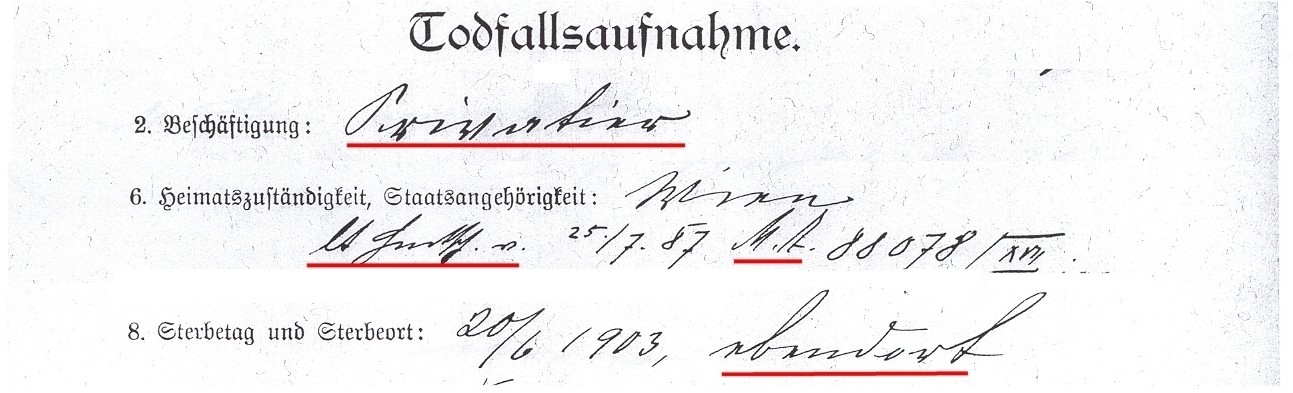 Todfallsaufnahme.
2. Beschäftigung: Privatier
6. Heimatszuständigkeit, Staatsangehörigkeit: Wien
lt v. 25./7. 87 M.A. 88078/XVII.
8. Sterbetag und Sterbeort: 20/6 1903, ebendort